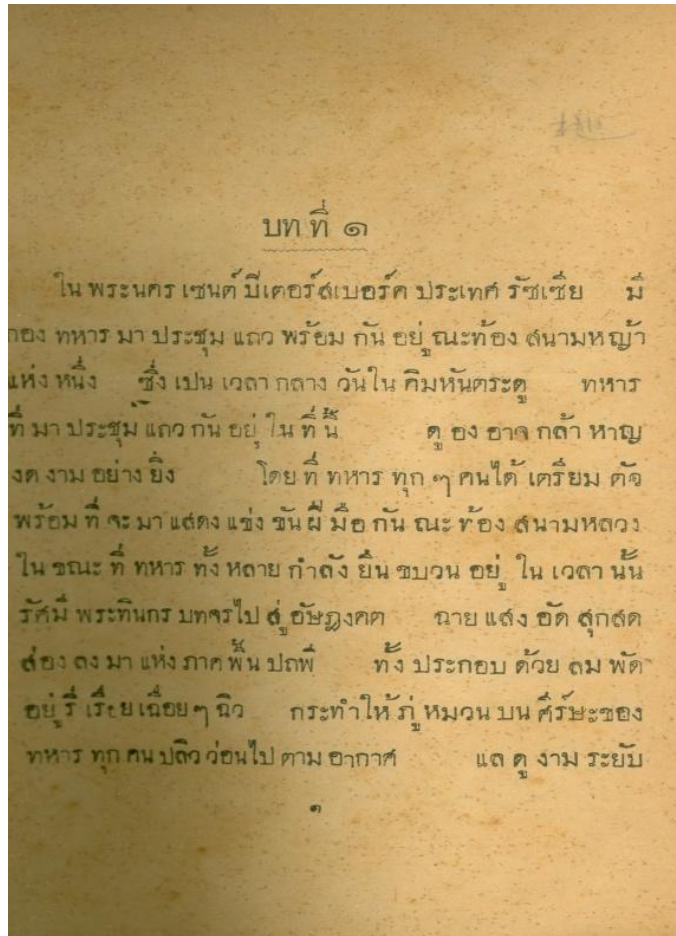 บทที่ ๑
ใน พระนคร เซนต์ ปีเตอร์ส์เบอร์ค ประเทศ รัซเซีย มี
กอง ทหาร มา ประชุม แถว พร้อม กัน อยู่ ณะท้อง สนามหญ้า
แห่ง หนึ่ง ซึ่ง เปน เวลา กลาง วันใน คิมหันตระดู ทหาร
ที่ มา ประชุม แถว กัน อยู่ ใน ที่ นี้ ดู อง อาจ กล้า หาญ
งด งาม อย่าง ยิ่ง โดย ที่ ทหาร ทุก ๆ คนได้ เตรียม ตัว
พร้อม ที่ จะ มา แสดง แข่ง ขัน ฝี มือ กัน ณะ ท้อง สนามหลวง
ใน ขณะ ที่ ทหาร ทั้ง หลาย กำลัง ยืน ขบวน อยู่ ใน เวลา นั้น
รัศมี พระทินกร บทจรไป สู่ อัษฎงคต ฉาย แสง อัด สุกสด
ส่อง ลง มา แห่ง ภาค พื้น ปถพี ทั้ง ประกอบ ด้วย ลม พัด
อยู่ รี่ เรื่อย เฉื่อย ๆ ฉิว กระทำให้ ภู่ หมวน บน ศีร์ษะของ
ทหาร ทุก คน ปลิว ว่อนไป ตาม อากาศ แล ดู งาม ระยับ
๑